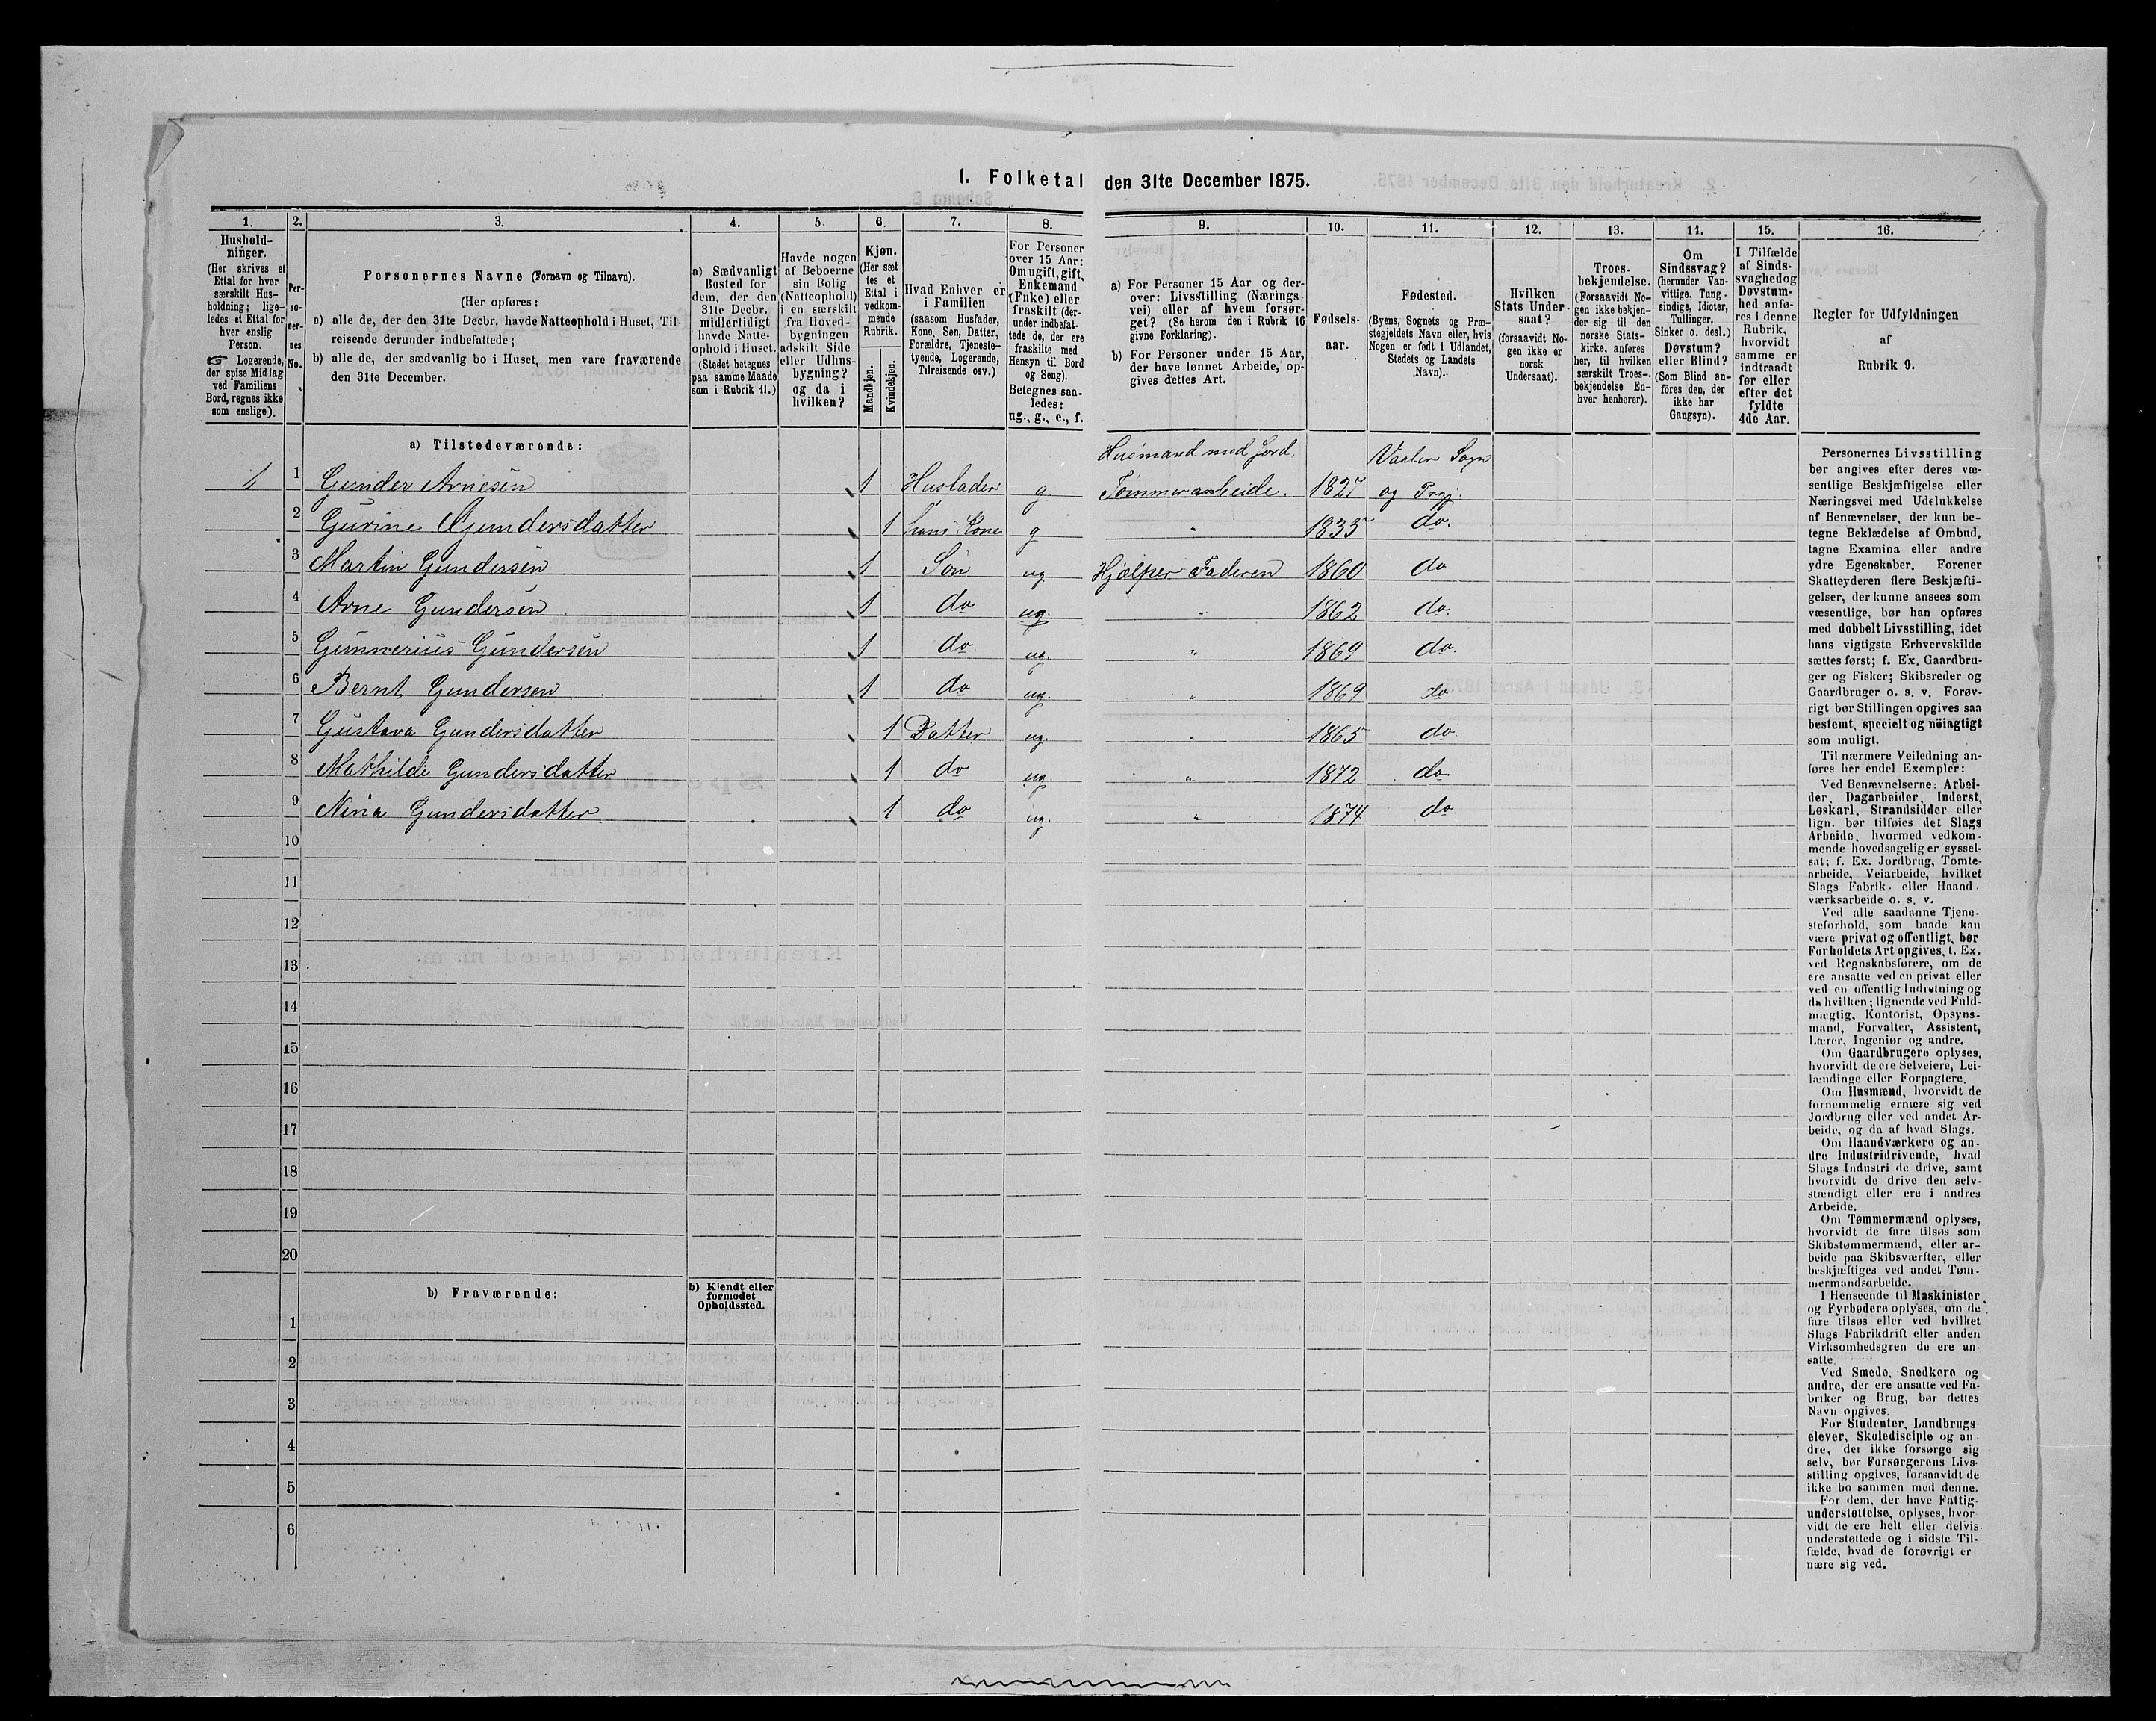 1. Folketal den 31te December 1875.
1. 2. 3. 4. 5. 6. 7. 8. 9. 10. 11. 12. 13. 14. 15. 16.
Hushold-
ninger.
(Her skrives et
Ettal for hver
særskilt Hus-
holdning; lige-
ledes et Ettal for
hver enslig
Person.
☞ Logerende,
der spise Midlag
ved Familiens
Bord, regnes ikke
som enslige).
Per-
so-
ner-
nes
No.
Personernes Navne (Fornavn og Tilnavn).
(Her opføres:
a) alle de, der den 31te Decbr. havde Natteophold i Huset, Til-
reisende derunder indbefattede;
b) alle de, der sædvanlig bo i Huset, men vare fraværende
den 31te December.
a) Sædvanligt
Bosted for
dem, der den
31te Decbr.
midlertidigt
havde Natte-
ophold i Huset.
(Stedet betegnes
paa samme Maade
som i Rubrik 11.)
Havde nogen
af Beboerne
sin Bolig
(Natteophold)
i en særskilt
fra Hoved-
bygningen
adskilt Side
eller Udhus-
bygning?
og da i
hvilken?
Kjøn.
(Her sæt
tes et
Ettal i
vedkom-
mende
Rubrik.
Mandkjøn.
Kvindekjøn.
Hvad Enhver er
i Familien
(saasom Husfader,
Kone, Søn, Datter,
Forældre, Tjeneste-
tyende, Logerende,
Tilreisende osv.)
For Personer
over 15 Aar:
Om ugift, gift,
Enkemand
(Enke) eller
fraskilt (der-
under indbefat-
tede de, der ere
fraskilte med
Hensyn til Bord
og Seng).
Betegnes saa-
ledes:
ug., g., e., f.
a) For Personer 15 Aar og der-
over: Livsstilling (Nærings
vei) eller af hvem forsør-
get? (Se herom den i Rubrik 16
givne Forklaring).
b) For Personer under 15 Aar,
der have lønnet Arbeide, op-
gives dettes Art.
Fødsels-
aar.
Fødested.
(Byens, Sognets og Præ-
stegjeldets Navn eller, hvis
Nogen er født i Udlandet,
Stedets og Landets
Navn).
Hvilken
Stats Under-
saat?
(forsaavidt No-
gen ikke er
norsk
Undersaat).
Troes-
bekjendelse.
(Forsaavidt No-
gen ikke bekjen-
der sig til den
norske Stats-
kirke, anføres
her, til hvilken
særskilt Troes-
bekjendelse En-
hver henhører).
Om
Sindssvag?
(herunder Van-
vittige, Tung-
sindige, Idioter,
Tullinger,
Sinker o. desl.)
Døvstum?
eller Blind?
(Som Blind an-
føres den, der
ikke har
Gangsyn).
I Tilfælde
af Sinds-
svaghed og
Døvstum-
hed anfø-
res i denne
Rubrik,
hvorvidt
samme er
indtraadt
før eller
efter det
fyldte
4de Aar.
Regler for Udfyldningen
af
Rubrik 9.
a) Tilstedeværende:
Husmand med Jord. Vaaler Sogn
1 1 Gunder Arnesen 1 Husfader g Tømmerarbeide. 1827 og Prgj.
2 Gurine Gundersdatter 1 hans Kone g " 1835 do.
3 Martin Gundersen 1 Søn ug Hjælper Faderen 1860 do
4 Arne Gundersen 1 do ug. " 1862 do.
5 Gunnerius Gundersen 1 do ug. " 1869 do.
6 Bernt Gundersen 1 do ug. " 1869 do
7 Gustava Gundersdatter 1 Datter ug. " 1865 do.
8 Mathilde Gundersdatter 1 do ug. " 1872 do.
9 Nina Gundersdatter 1 do ug. " 1874 do
10
11
12
13
14
15
16
17
18
19
20
b) Fraværende:
b) Kjendt eller
formodet
Opholdssted.
1
2
3
4
5
6
Personernes Livsstilling
bør angives efter deres væ-
sentlige Beskjæftigelse eller
Næringsvei med Udelukkelse
af Benævnelser, der kun be-
tegne Beklædelse af Ombud,
tagne Examina eller andre
ydre Egenskaber. Forener
Skatteyderen flere Beskjæfti-
gelser, der kunne ansees som
væsentlige, bør han opføres
med dobbelt Livsstilling, idet
hans vigtigste Erhvervskilde
sættes først; f. Ex. Gaardbru-
ger og Fisker; Skibsreder og
Gaardbruger o. s. v. Forøv-
rigt bør Stillingen opgives saa
bestemt, specielt og nöiagtigt
som muligt.
Til nærmere Veiledning an-
føres her endel Exempler:
Ved Benævnelserne: Arbei-
der, Dagarbeider, Inderst,
Løskarl, Strandsidder eller
lign. bør tilføies det Slags
Arbeide, hvormed vedkom-
mende hovedsagelig er syssel-
sat; f. Ex. Jordbrug, Tomte-
arbeide, Veiarbeide, hvilket
Slags Fabrik- eller Haand-
værksarbeide o. s. v.
Ved alle saadanne Tjene-
steforhold, som baade kan
være privat og offentligt, bør
Forholdets Art opgives, t. Ex.
ved Regnskabsførere, om de
ere ansatte ved en privat eller
ved en offentlig Indretning og
da hvilken; lignende ved Fuld-
mægtig, Kontorist, Opsyns-
mand, Forvalter, Assistent,
Lærer, Ingeniør og andre.
Om Gaardbrugere oplyses,
hvorvidt de ere Selveiere, Lei-
lændinge eller Forpagtere.
Om Husmænd, hvorvidt de
fornemmelig ernære sig ved
Jordbrug eller ved andet Ar-
beide, og da af hvad Slags.
Om Haandværkere og an-
dre Industridrivende, hvad
Slags Industri de drive, samt
hvorvidt de drive den selv-
stændigt eller ere i andres
Arbeide.
Om Tømmermænd oplyses,
hvorvidt de fare tilsøs som
Skibstømmermænd, eller ar-
beide paa Skibsværfter, eller
beskjæftiges ved andet Tøm-
mermandsarbeide.
I Henseende til Maskinister
og Fyrbødere oplyses, om de
fare tilsøs eller ved hvilket
Slags Fabrikdrift eller anden
Virksomhedsgren de ere an-
satte.
Ved Smede, Snedkere og
andre, der ere ansatte ved Fa-
briker og Brug, bør dettes
Navn opgives.
For Studenter, Landbrugs-
elever, Skoledisciple og an-
dre, der ikke forsørge sig
selv, bør Forsørgerens Livs-
stilling opgives, forsaavidt de
ikke bo sammen med denne.
For dem, der have Fattig-
understøttelse, oplyses, hvor-
vidt de ere helt eller delvis
understøttede og i sidste Til-
fælde, hvad de forøvrigt er-
nære sig ved.